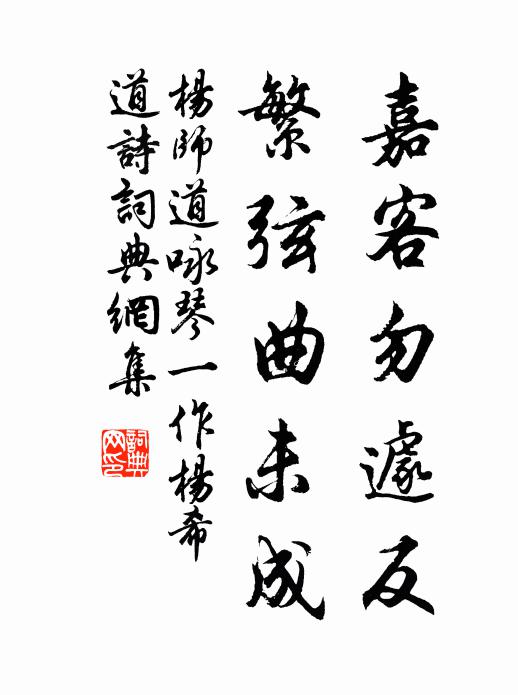 嘉客勿遽反
繁弦曲未成
楊師道咏琴一作楊希
道詩詞典網集
詞典网印